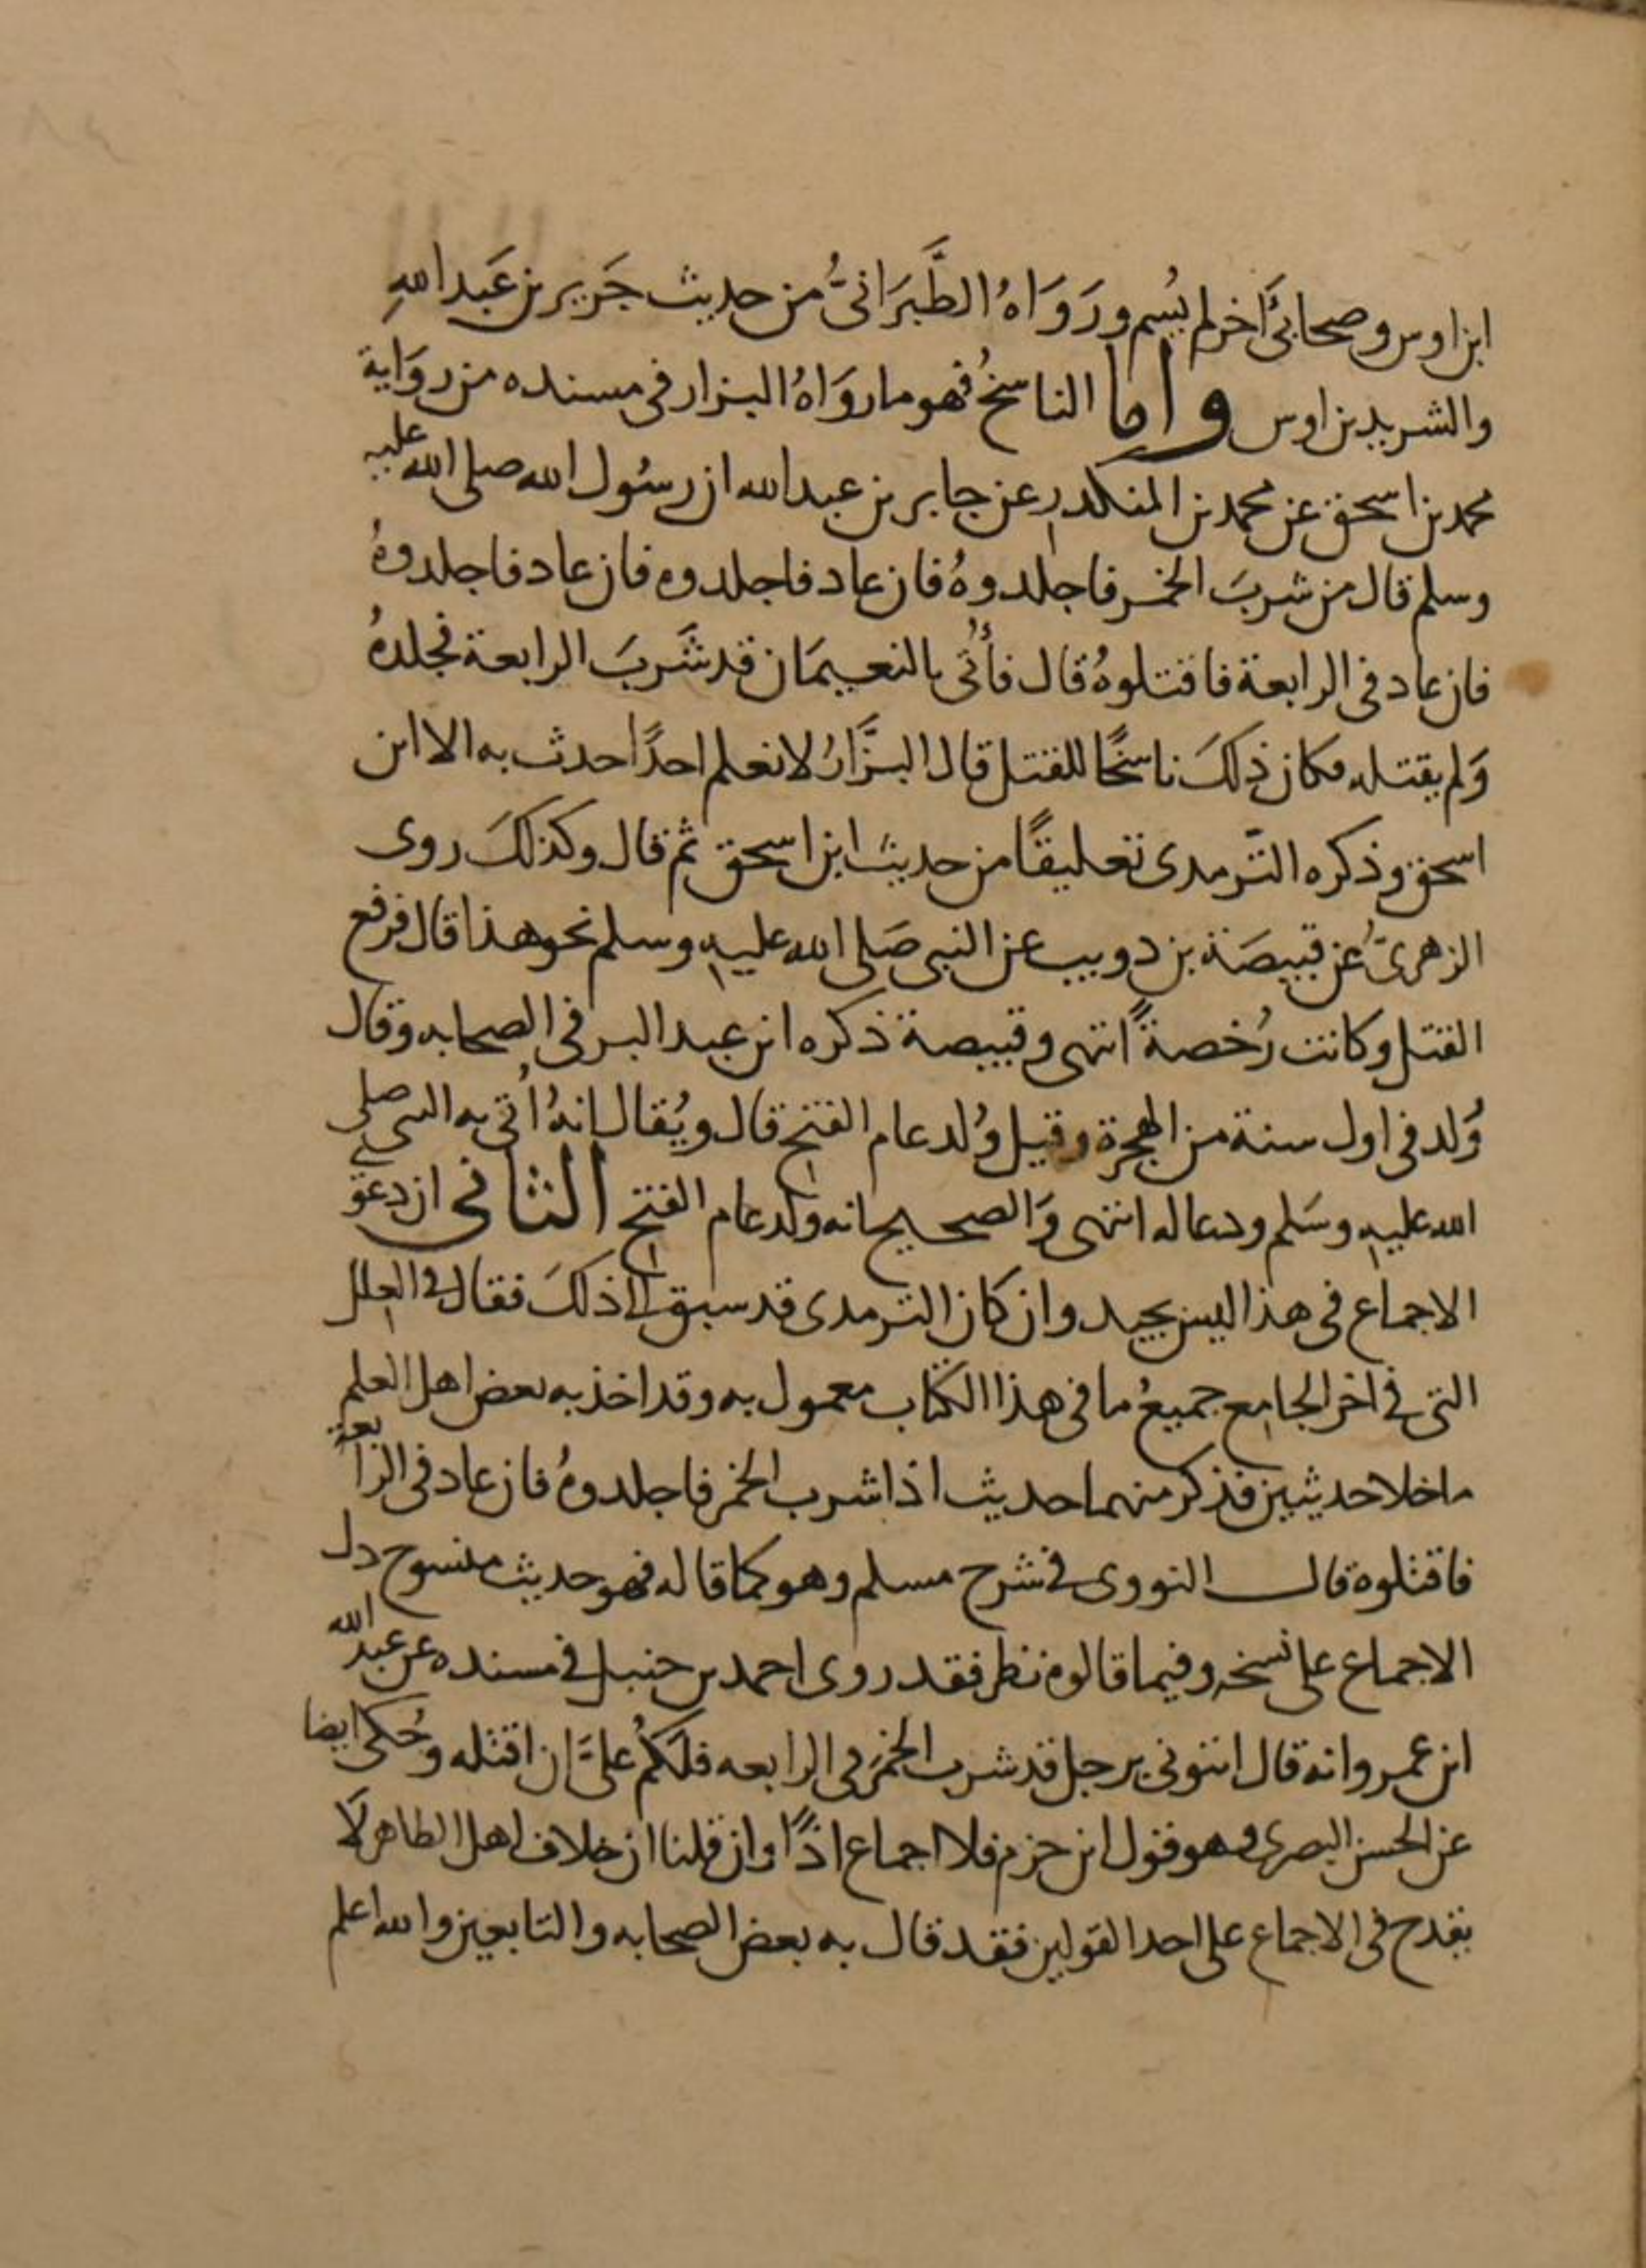 ابن اوس وصحابيٌّ آخر لم يُسم ورَوَاهُ الطَّبَرَانىُّ من حديث جَرير بن عَبد اللهِ
والشريد بن اوس واما الناسخُ فهو ما روَاهُ البزار فى مسنده من روَاية
محمد بن اسحق عن محمد بن المنكدر عن جابر بن عبد الله ان رسُول الله صلى الله عليه
وسلم قال من شربَ الخمر فاجلدوهُ فان عاد فاجلدوه فان عاد فاجلدوهُ
فان عاد فى الرابعة فاقتلوهُ قال فأُتى بالنعيمَان قد شَربَ الرابعة فجلدهُ
وَلم يقتله فكان ذلكَ ناسخًا للقتل قال البزَّارُ لا نعلم احدًا حدث به الا ابن
اسحق وذكره الترمدى تعليقًا من حديث ابن اسحق ثم قال وكذلكَ روى
الزهرىُّ عن قبيصَة بن دويب عن النبى صَلى الله عليه وسلم نحو هذا قال فرفع
القتل وكانت رُخصةً انتهى وقبيصة ذكره ابن عبد البر فى الصحابه وقال
وُلد فى اول سنة من الهجرة وقيل وُلد عام الفتح قال ويُقال انهُ اُتى به النبى صلى
الله عليه وسَلم ودعا له انتهى وَالصحيح انه ولد عام الفتح الثانى ان دعوَى
الاجماع فى هذا ليس بجيد وان كان الترمدى قد سبق الى ذلكَ فقال فى العلل
التى فى اخر الجامع جميعُ ما فى هذا الكتاب معمول به وقد اخذ به بعض اهل العلم
ما خلا حديثين فذكر منهما حديث اذا شرب الخمر فاجلدوهُ فان عاد فى الرابعة
فاقتلوه قال النووى فى شرح مسلم وهو كما قاله فهو حديث منسوخ دل
الاجماع على نسخه وفيما قالوه نظر فقد روى احمد بن حنبل فى مسنده عن عبد الله
ابن عمرو انه قال ائتونى برجل قد شرب الخمرَ فى الرابعه فلكمُ علىَّ ان اقتله وحُكى ايضا
عن الحسن البصرى وهو قول ابن حزم فلا اجماع اذًا وان قلنا ان خلاف اهل الظاهر لَا
يقدح فى الاجماع على احد القولين فقد قال به بعض الصحابه والتابعين والله اعلم